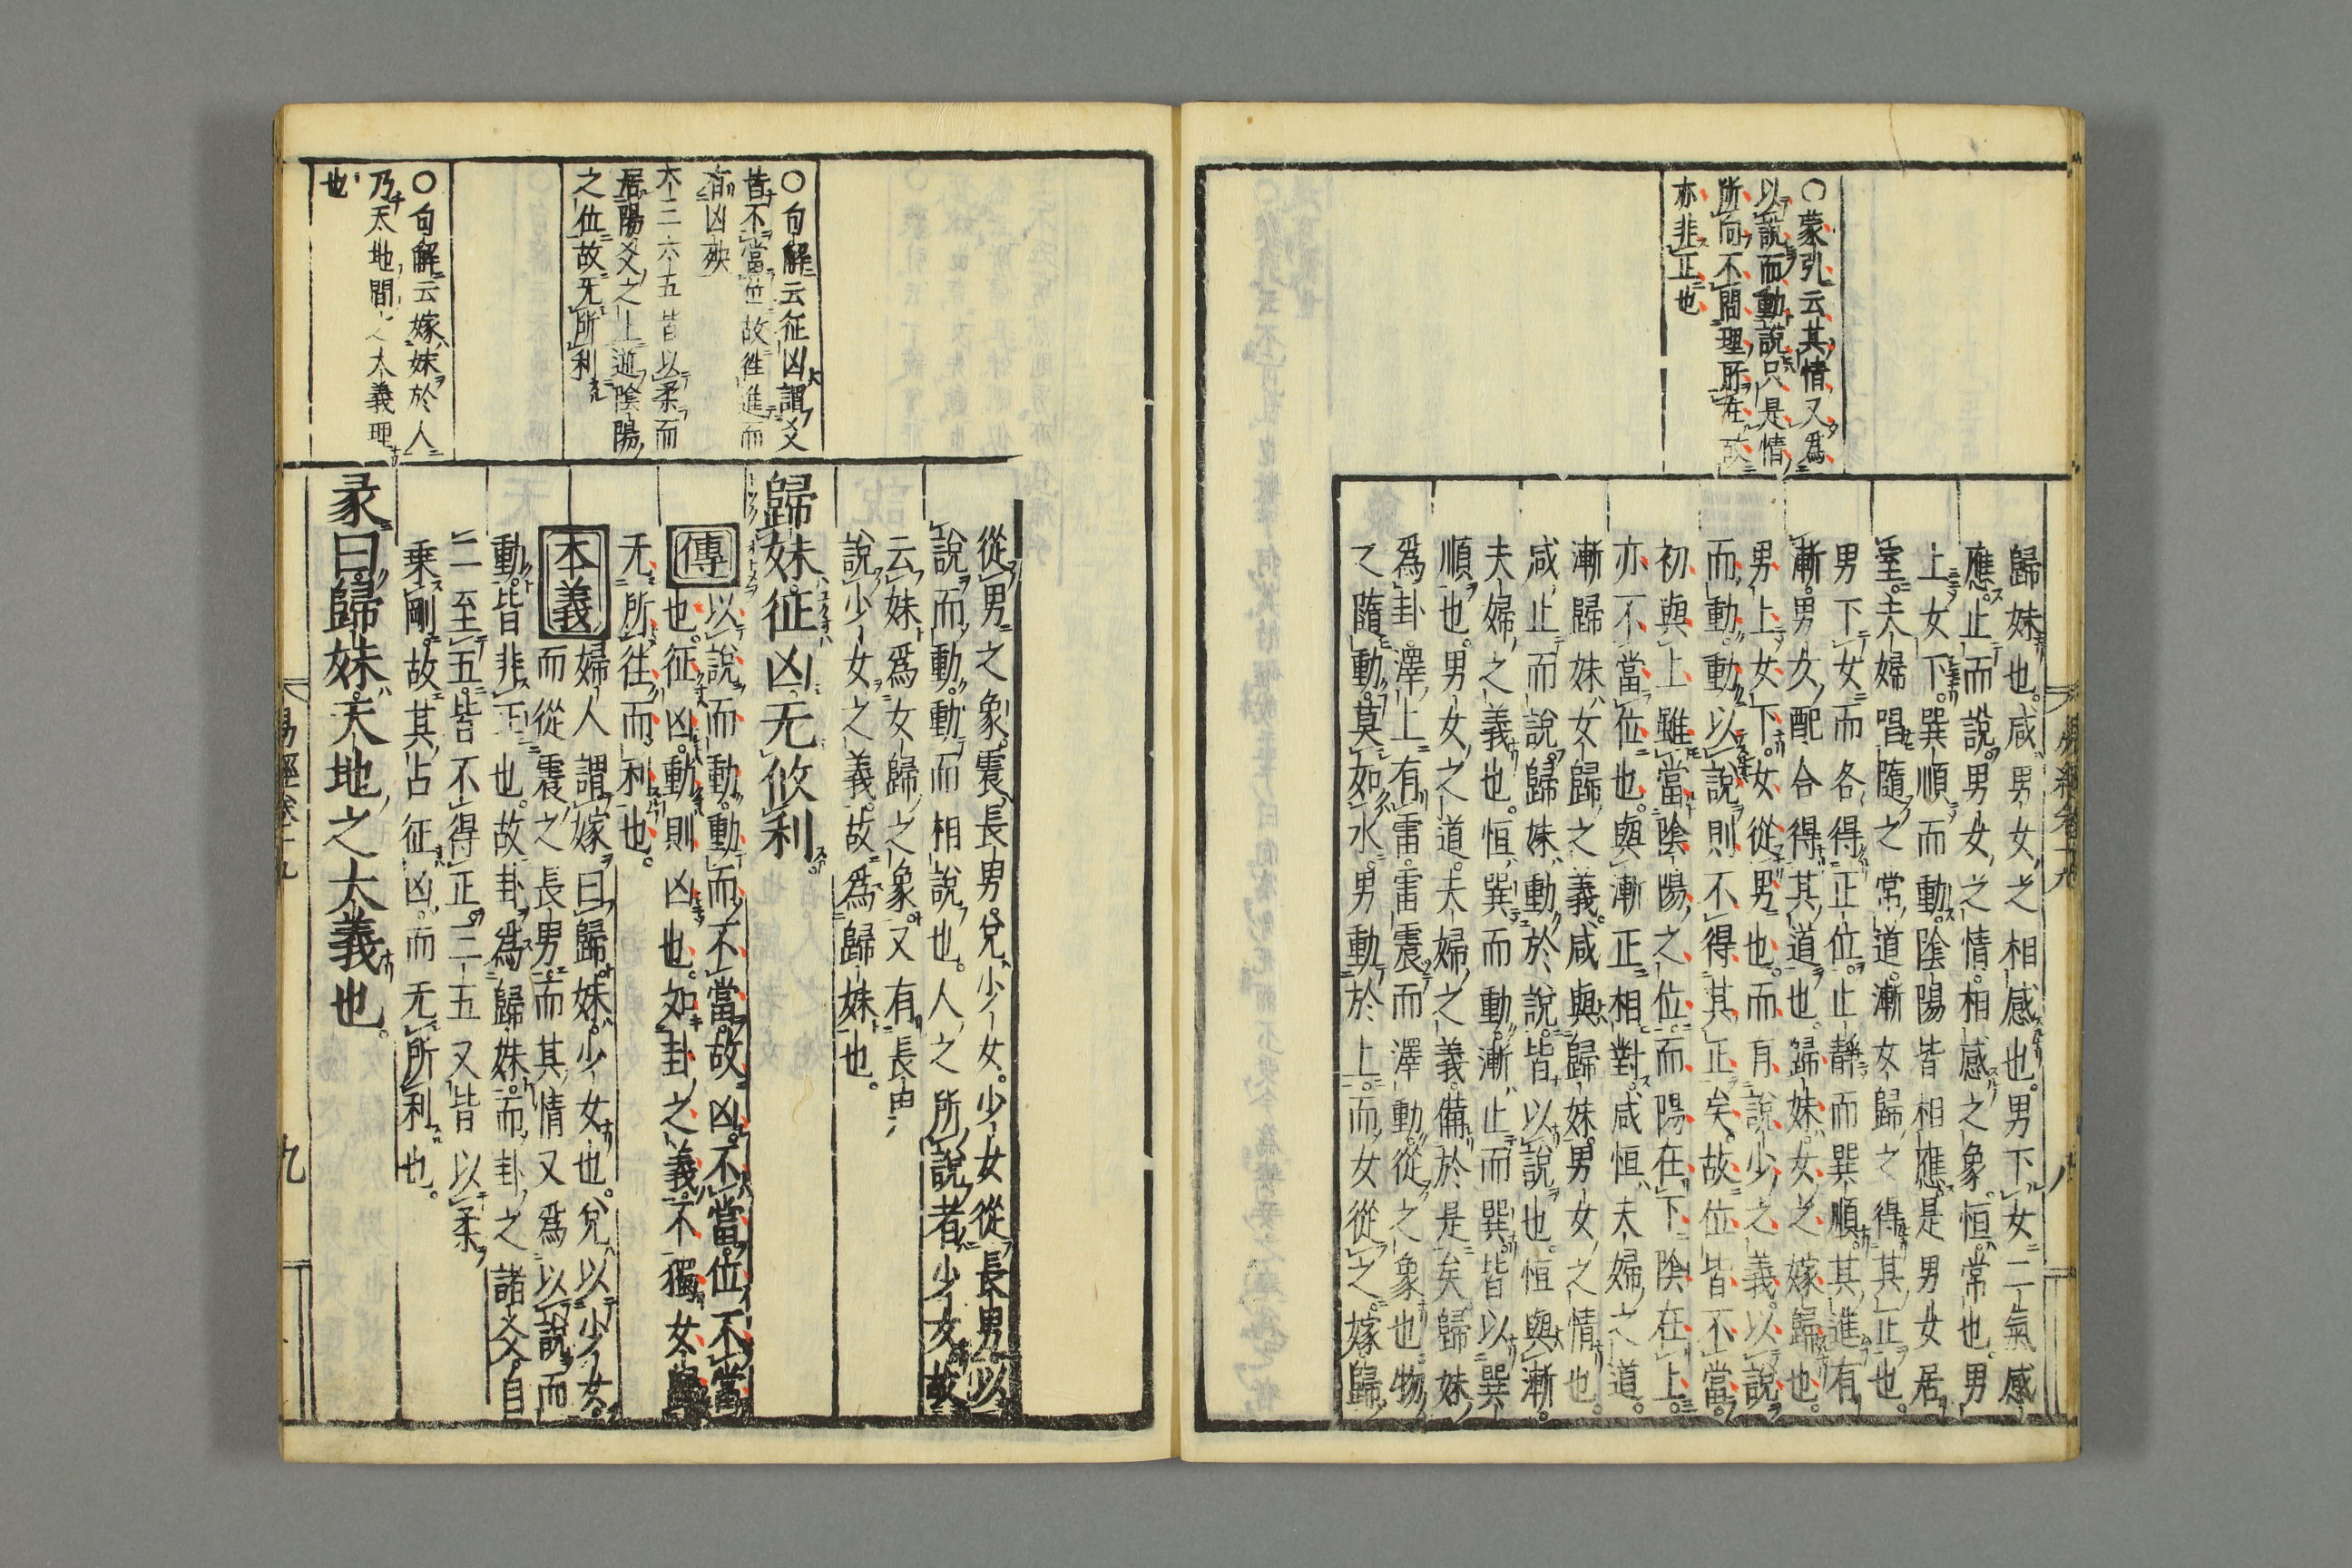 歸妹也。咸男女之相感也。男下女二氣感
應。止而說。男女之情。相感之象。恒。常也。男
上女下。巽順而動。陰陽皆相應。是男女居
室。夫婦唱隨之常道。漸女歸之得其正也。
男下女而各得正位。止靜而巽順。其進有
漸。男女配合得其道也。歸妹。女之嫁歸也。
男上女下。女從男也。而有說少之義。以說
而動。動以說則不得其正矣。故位皆不當。
初與上雖當陰陽之位。而陽在下陰在上。
亦不當位也。與漸正相對。咸恒。夫婦之道。
漸歸妹女歸之義。咸與歸妹。男女之情也。
咸止而說。歸妹動於說。皆以說也。恒與漸。
夫婦之義也。恒巽而動。漸止而巽。皆以巽
順也。男女之道。夫婦之義備於是矣。歸妹
爲卦。澤上有雷。雷震而澤動。從之象也。物
之隨動。莫如水。男動於上。而女從之。嫁歸
○蒙引云其情又爲
以說而動說只是情
所向不問理所在故
亦非正也
易經卷十九
從男之象。震長男。兌少女。少女從長男。以
說而動。動而相說也。人之所說者少女。故
云妹爲女歸之象。又有長男
說少女之義。故爲歸妹也。
歸妹征凶无攸利
傳以說而動。動而不當。故凶。不當。位不當
也。征凶。動則凶也。如卦之義。不獨女歸
无所往而利也。
本義婦人謂嫁曰歸。妹。少女也。兌以少女。
而從震之長男。而其情又爲以說而
動。皆非正也。故卦爲歸妹。而卦之諸爻。自
二至五。皆不得正。三五又皆以柔
乗剛。故其占征凶。而无所利也。
彖曰。歸妹。天地之大義也。
○句解云征凶謂爻
皆不當位故徃進而
有凶殃
不二六五皆以柔而
居陽爻之上逆陰陽
之位故无所利
○句解云嫁妹於人
乃天地間之大義理
也
易經卷十九
九